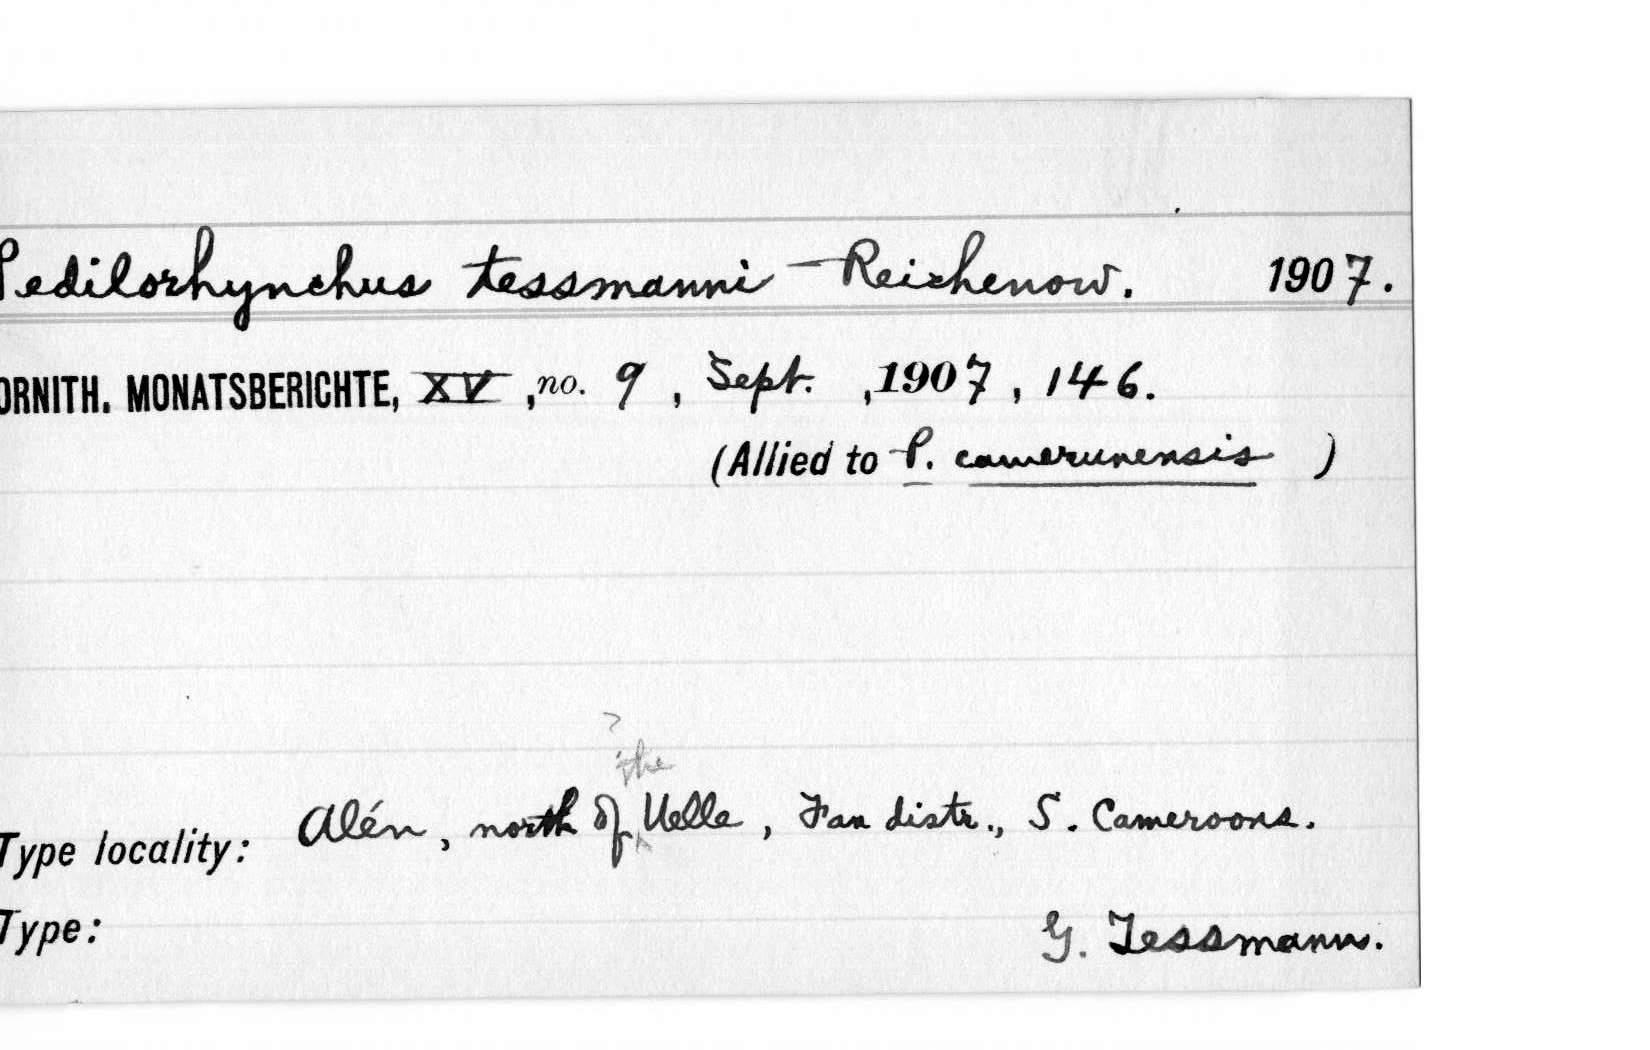 Pedilorhynchus tessmanni Reichenow. 1907.
ORNITH. MONATSBERICHTE, XV, no. 9, Sept., 1907, 146.
(Allied to P. camerunensis)
?
the
Type locality: Alén, north of Uelle, Fan distr., S. Cameroons.
Type: G. Tessmann.